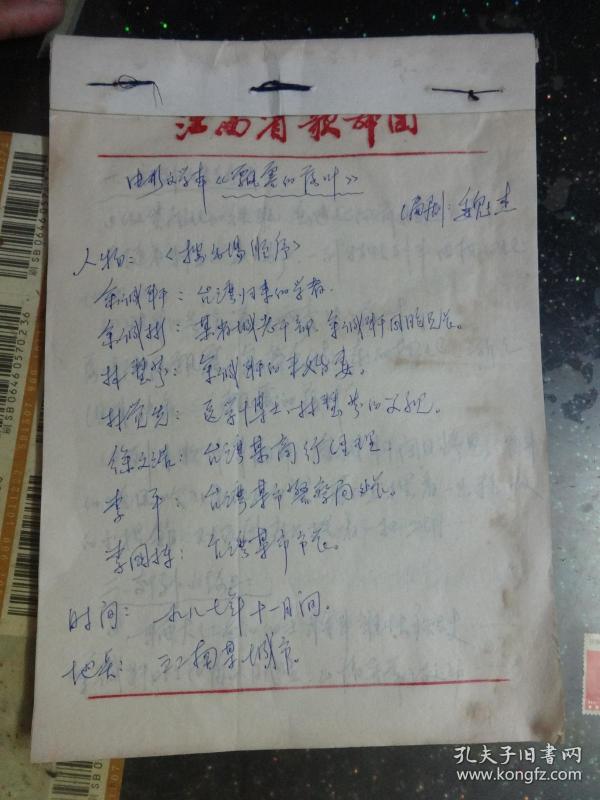 江西省歌舞团
电影文学本《飘零的落叶》
（编剧：魏杰
人物：《按出场顺序》
余诚轩：台湾归来的学者.
余诚彬：某省城老干部，余诚轩同胞兄弟。
林慧芳：余诚轩的未婚妻。
林觉先：医学博士，林慧芳的父亲。
徐立浩：台湾某商行经理.
李平：台湾某市警察局处长。
李国栋：台湾某市市长。
时间：一九八七年十一月间.
地点：江南某城市。
SB06460570236
孔夫子旧书网
www.kongfz.com